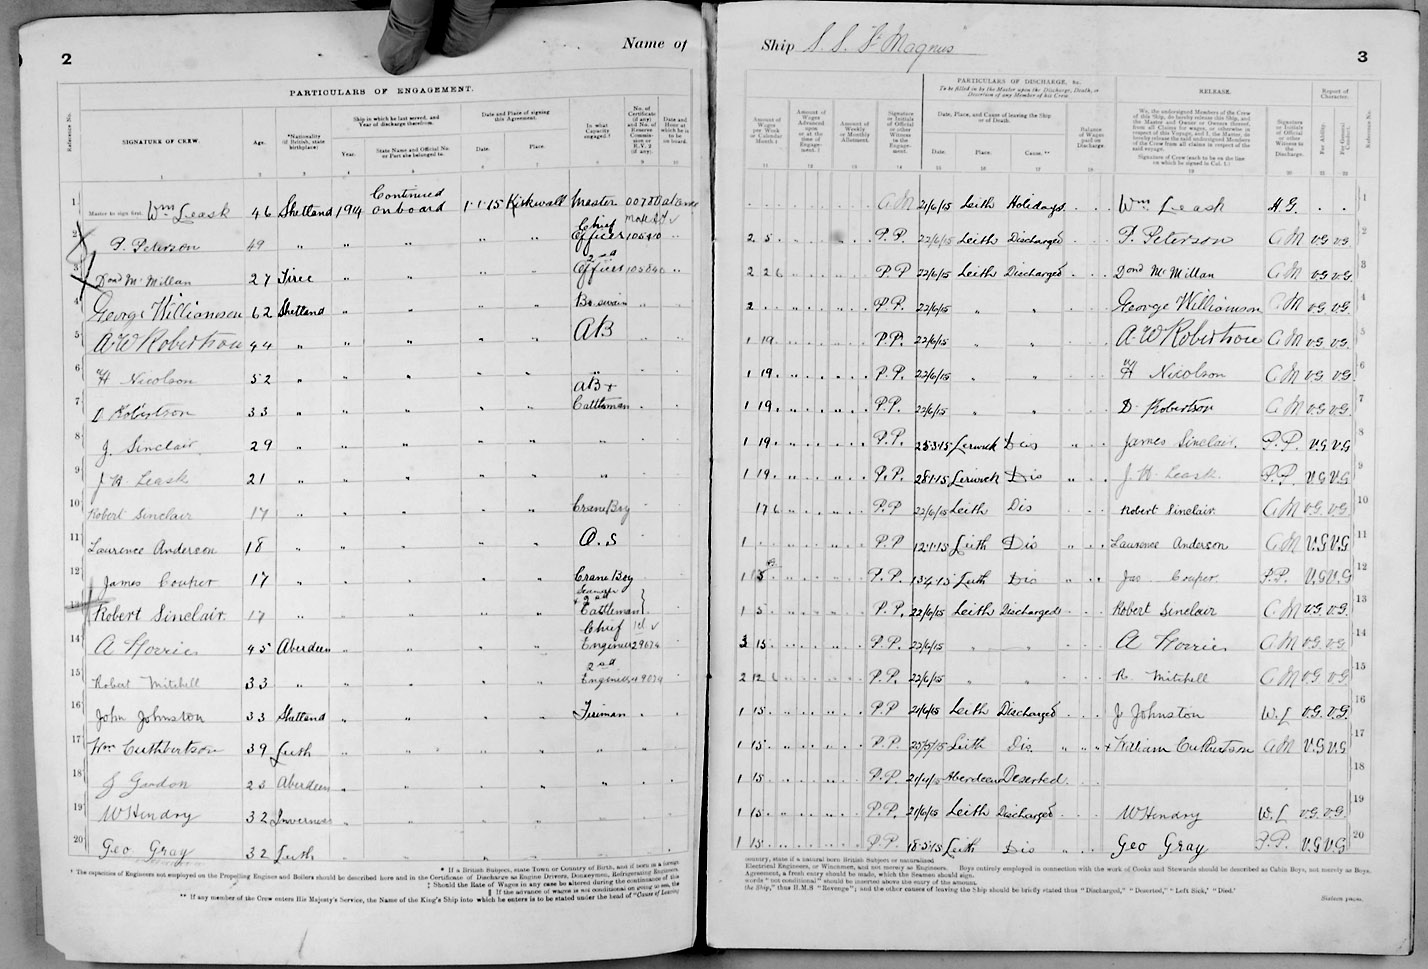 2
Name of
PARTICULARS OF ENGAGEMENT.
Reference No.
SIGNATURE OF CREW.
Age.
*Nationality (if British, state birthplace)
Ship in which he last served, and Year of discharge therefrom.
Year.
State Name and Official No. or Port she belonged to.
Date and Place of signing this Agreement.
Date.
Place.
In what Capacity engaged.†
No. of Certificate (if any)
Date and Hour at which he is to be on board.
1 Master to sign first. Wm Leask 46 Shetland 1914 Continued onboard 1.1.15 Kirkwall Master
2 P. Peterson 49 " " " " " Chief Officer
3 Dond McMillan 27 Tiree " " " " 2nd Officer
4 George Williamson 62 Shetland " " " " Bo swain
5 A. W Robertson 44 " " " " " AB
6 H Nicolson 52 " " " " " "
7 D Robertson 33 " " " " " AB + Cattleman
8 J. Sinclair 29 " " " " " "
9 J W Leask 21 " " " " " "
10 Robert Sinclair 17 " " " " " Crane Boy
11 Laurence Anderson 18 " " " " " O.S
12 James Couper 17 " " " " " Crane Boy
13 Robert Sinclair. 17 " " " " " 2nd Cattleman
14 A Horrie 45 Aberdeen " " " " Chief Engineer
15 Robert Mitchell 33 " " " " " 2nd Engineer
16 John Johnston 33 Shetland " " " " Fireman
17 Wm Cuthbertson 39 Leith " " " " "
18 J Gordon 23 Aberdeen " " " " "
19 W Hendry 32 Inverness " " " " "
20 Geo Gray 32 Leith " " " " "
* If a British Subject, state Town or Country of Birth, and if born in a foreign
† The capacities of Engineers not employed on the Propelling Engines and Boilers should be described here and in the Certificate of Discharge as Engine Drivers, Donkeymen, Refrigerating Engineers,
‡ Should the Rate of Wages in any case be altered during the continuance of this
‖ If the advance of wages is not conditional on going to sea, the
** If any member of the Crew enters His Majesty's Service, the Name of the King's Ship into which he enters is to be stated under the head of "Cause of Leaving
Ship S. S. St Magnus
3
PARTICULARS OF DISCHARGE, &c.
To be filled in by the Master upon the Discharge, Death, or Desertion of any Member of his Crew.
RELEASE.
Report of Character.
Amount of Wages per Week or Calendar Month ‡
Amount of Wages Advanced upon or at the time of Engagement. ‖
Amount of Weekly or Monthly Allotment.
Signature or Initials of Official or other Witness to the Engagement.
Date, Place, and Cause of leaving the Ship or of Death.
Date.
Place.
Cause.**
Balance of Wages paid on Discharge.
We, the undersigned Members of the Crew of this Ship, do hereby release this Ship, and the Master and Owner or Owners thereof, from all Claims for wages, or otherwise in respect of this Voyage, and I, the Master, do hereby release the said undersigned Members of the Crew from all claims in respect of the said voyage.
Signature of Crew (each to be on the line on which he signed in Col. 1.)
Signature or Initials of Official or other Witness to the Discharge.
For Ability.
For General Conduct.
Reference No.
21/6/15 Leith Holidays Wm Leask H.G. 1
2 5 P.P. 22/6/15 Leith Discharged P. Peterson V.G V.G. 2
2 2 6 P.P 22/6/15 Leith Discharged Dond McMillan V.G V.G. 3
2 P.P. 22/6/15 " " George Williamson V.G. V.G. 4
1 19 P.P. 22/6/15 " " A. W Robertson V.G V.G. 5
1 19 P.P. 22/6/15 " " H Nicolson V.G V.G. 6
1 19 P.P. 22/6/15 " " D. Robertson V.G V.G. 7
1 19 P.P. 25.3.15 Lerwick Dis James Sinclair. P.P. V.G V.G 8
1 19 P.P. 28.1.15 Lerwick Dis J. W. Leask. P.P. V.G V.G. 9
17 6 P.P 22/6/15 Leith Dis Robert Sinclair. V.G V.G. 10
1 P.P 12.1.15 Leith Dis Laurence Anderson V.G V.G. 11
1 P.P. 13.4.15 Leith Dis Jas Couper. P.P. V.G V.G 12
1 5 P.P. 22/6/15 Leith Discharged Robert Sinclair V.G. V.G. 13
3 15 P.P. 22/6/15 " " A Horrie V.G. V.G. 14
2 12 6 P.P. 22/6/15 " " R. Mitchell V.G V.G. 15
1 15 P.P 21/6/15 Leith Discharged J Johnston W.L V.G. V.G. 16
1 15 P.P Leith Dis. William Cuthbertson V.G V.G. 17
1 15 P.P. Aberdeen Deserted 18
1 15 P.P. 21/6/15 Leith Discharged W Hendry W.L V.G. V.G. 19
1 15 P.P 18.5.15 Leith Dis Geo Gray P.P. V.G V.G 20
country, state if a natural born British Subject or naturalized.
Electrical Engineers, or Winchmen, and not merely as Engineers. Boys entirely employed in connection with the work of Cooks and Stewards should be described as Cabin Boys, not merely as Boys.
Agreement, a fresh entry should be made, which the Seaman should sign.
words "not conditional" should be inserted above the entry of the amount.
the Ship," thus H.M.S "Revenge"; and the other causes of leaving the Ship should be briefly stated thus "Discharged," "Deserted," "Left Sick," "Died."
Sixteen pages.